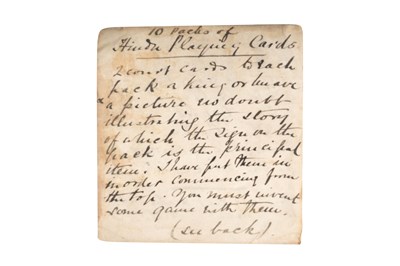 10 Packs of
Hindu Playing Cards.
2 court cards to each
pack a king or
a picture no doubt
illustrating the story
of which the sign on the
back is the principal
item. I have put them in
order commencing from
the top. You must invent
some game with them.
(see back).